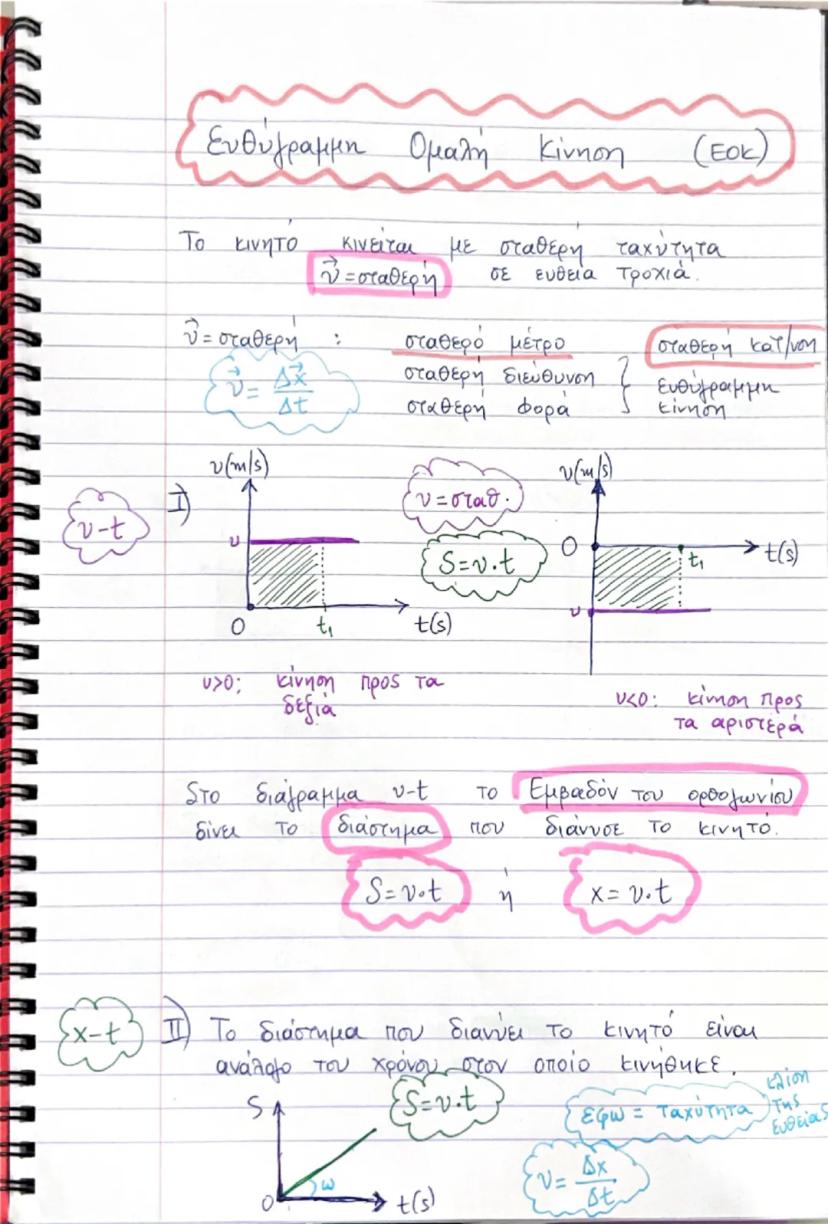 Ευθύγραμμη Ομαλή Κίνηση (ΕΟΚ)
Το κινητό κινείται με σταθερή ταχύτητα
v⃗ = σταθερή σε ευθεία τροχιά.
v⃗ = σταθερή : σταθερό μέτρο σταθερή κατ/νση
v⃗ = Δx⃗/Δt
σταθερή διεύθυνση } ευθύγραμμη
σταθερή φορά } κίνηση
v-t
I)
v(m/s)
v
0 t₁ t(s)
v = σταθ.
S = v·t
v(m/s)
0 t₁ t(s)
v
υ>0: κίνηση προς τα
δεξιά
υ<0: κίνηση προς
τα αριστερά
Στο διάγραμμα v-t το Εμβαδόν του ορθογωνίου
δίνει το διάστημα που διάνυσε το κινητό.
S = v·t ή x = v·t
x-t
II) Το διάστημα που διανύει το κινητό είναι
ανάλογο του χρόνου στον οποίο κινήθηκε.
S
S = v·t
ω
0 t(s)
εφω = ταχύτητα
κλίση
της
ευθείας
v = Δx/Δt